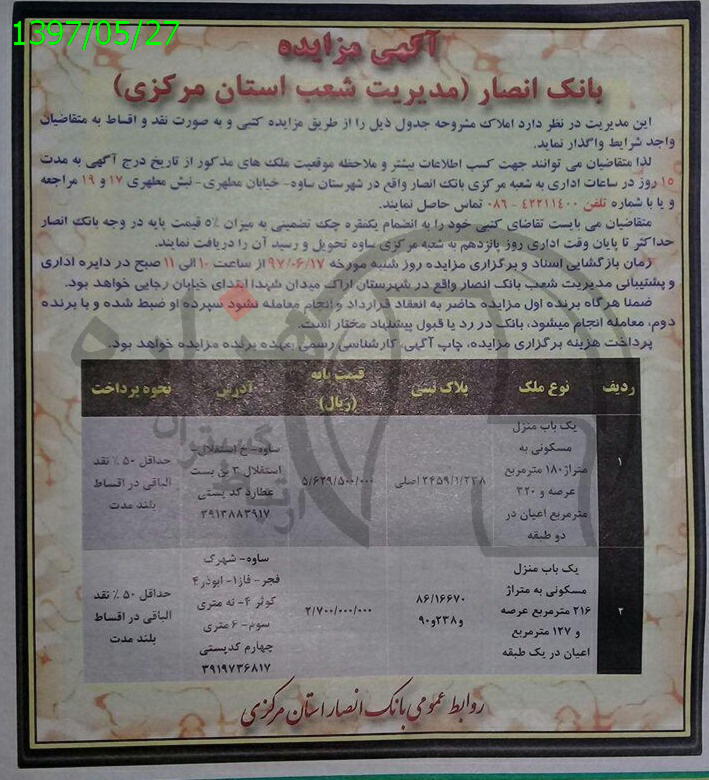 1397/05/27
آگهی مزایده
بانک انصار (مدیریت شعب استان مرکزی)
این مدیریت در نظر دارد املاک مشروحه جدول ذیل را از طریق مزایده کتبی و به صورت نقد و اقساط به متقاضیان
واجد شرایط واگذار نماید.
لذا متقاضیان می توانند جهت کسب اطلاعات بیشتر و ملاحظه موقعیت ملک های مذکور از تاریخ درج آگهی به مدت
۱۵ روز در ساعات اداری به شعبه مرکزی بانک انصار واقع در شهرستان ساوه- خیابان مطهری- نبش مطهری ۱۷ و ۱۹ مراجعه
و یا با شماره تلفن ۴۲۲۱۱۴۰۰ - ۰۸۶ تماس حاصل نمایند.
متقاضیان می بایست تقاضای کتبی خود را به انضمام یکفقره چک تضمینی به میزان ۵٪ قیمت پایه در وجه بانک انصار
حداکثر تا پایان وقت اداری روز پانزدهم به شعبه مرکزی ساوه تحویل و رسید آن را دریافت نمایند.
زمان بازگشایی اسناد و برگزاری مزایده روز شنبه مورخه ۹۷/۰۶/۱۷ از ساعت ۱۰ الی ۱۱ صبح در دایره اداری
و پشتیبانی مدیریت شعب بانک انصار واقع در شهرستان اراک میدان شهدا ابتدای خیابان رجایی خواهد بود.
ضمنا هرگاه برنده اول مزایده حاضر به انعقاد قرارداد و انجام معامله نشود سپرده او ضبط شده و با برنده
دوم، معامله انجام میشود، بانک در رد یا قبول پیشنهاد مختار است.
پرداخت هزینه برگزاری مزایده، چاپ آگهی، کارشناسی رسمی بعهده برنده مزایده خواهد بود.
ردیف نوع ملک پلاک ثبتی قیمت پایه (ریال) آدرس نحوه پرداخت
۱
یک باب منزل
مسکونی به
متراژ ۱۸۰ مترمربع
عرصه و ۳۲۰
مترمربع اعیان در
دو طبقه
۲۴۵۹/۱/۲۳۸ اصلی
۵/۶۲۹/۵۰۰/۰۰۰
ساوه- خ استقلال-
استقلال ۳ بن بست
عطارد کد پستی
۳۹۱۳۸۸۳۹۱۷
حداقل ۵۰ ٪ نقد
الباقی در اقساط
بلند مدت
۲
یک باب منزل
مسکونی به متراژ
۲۱۶ مترمربع عرصه
و ۱۲۷ مترمربع
اعیان در یک طبقه
۸۶/۱۶۶۷۰
و۲۳۸و۹۰
۲/۷۰۰/۰۰۰/۰۰۰
ساوه- شهرک
فجر- فاز۱- ابوذر۴
کوثر ۴- نه متری
سوم- ۶ متری
چهارم کدپستی
۳۹۱۹۷۳۶۸۱۷
حداقل ۵۰ ٪ نقد
الباقی در اقساط
بلند مدت
روابط عمومی بانک انصار استان مرکزی